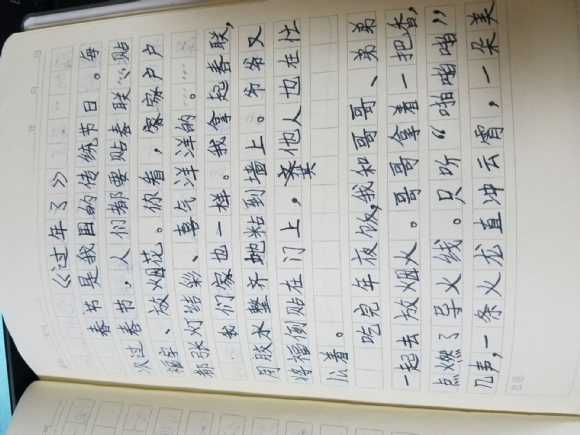 《过年了》
春节是我国的传统节日。每
次过春节，人们都要贴春联、贴
福字、放烟花。你看，家家户户
都张灯结彩、喜气洋洋的。
我们家也一样。我拿起春联，
用胶水整齐地粘到墙上。爷爷又
将福倒贴在门上，其他人也在忙
公着。
吃完年夜饭，我和哥哥、弟弟
一起去放烟火。哥哥拿着一把香，
点燃了导火线。只听“啪啪啪”
几声，一条火龙直冲云霄，一朵美